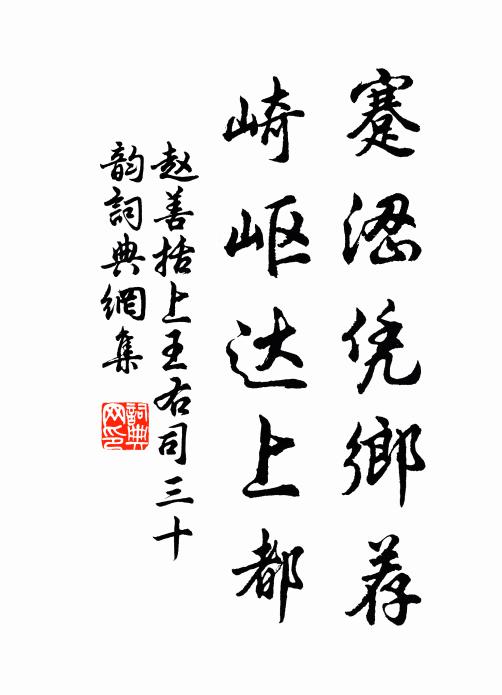 蹇涩凭鄉荐
崎岖达上都
赵善括上王右司三十
韵詞典網集
詞典
网印